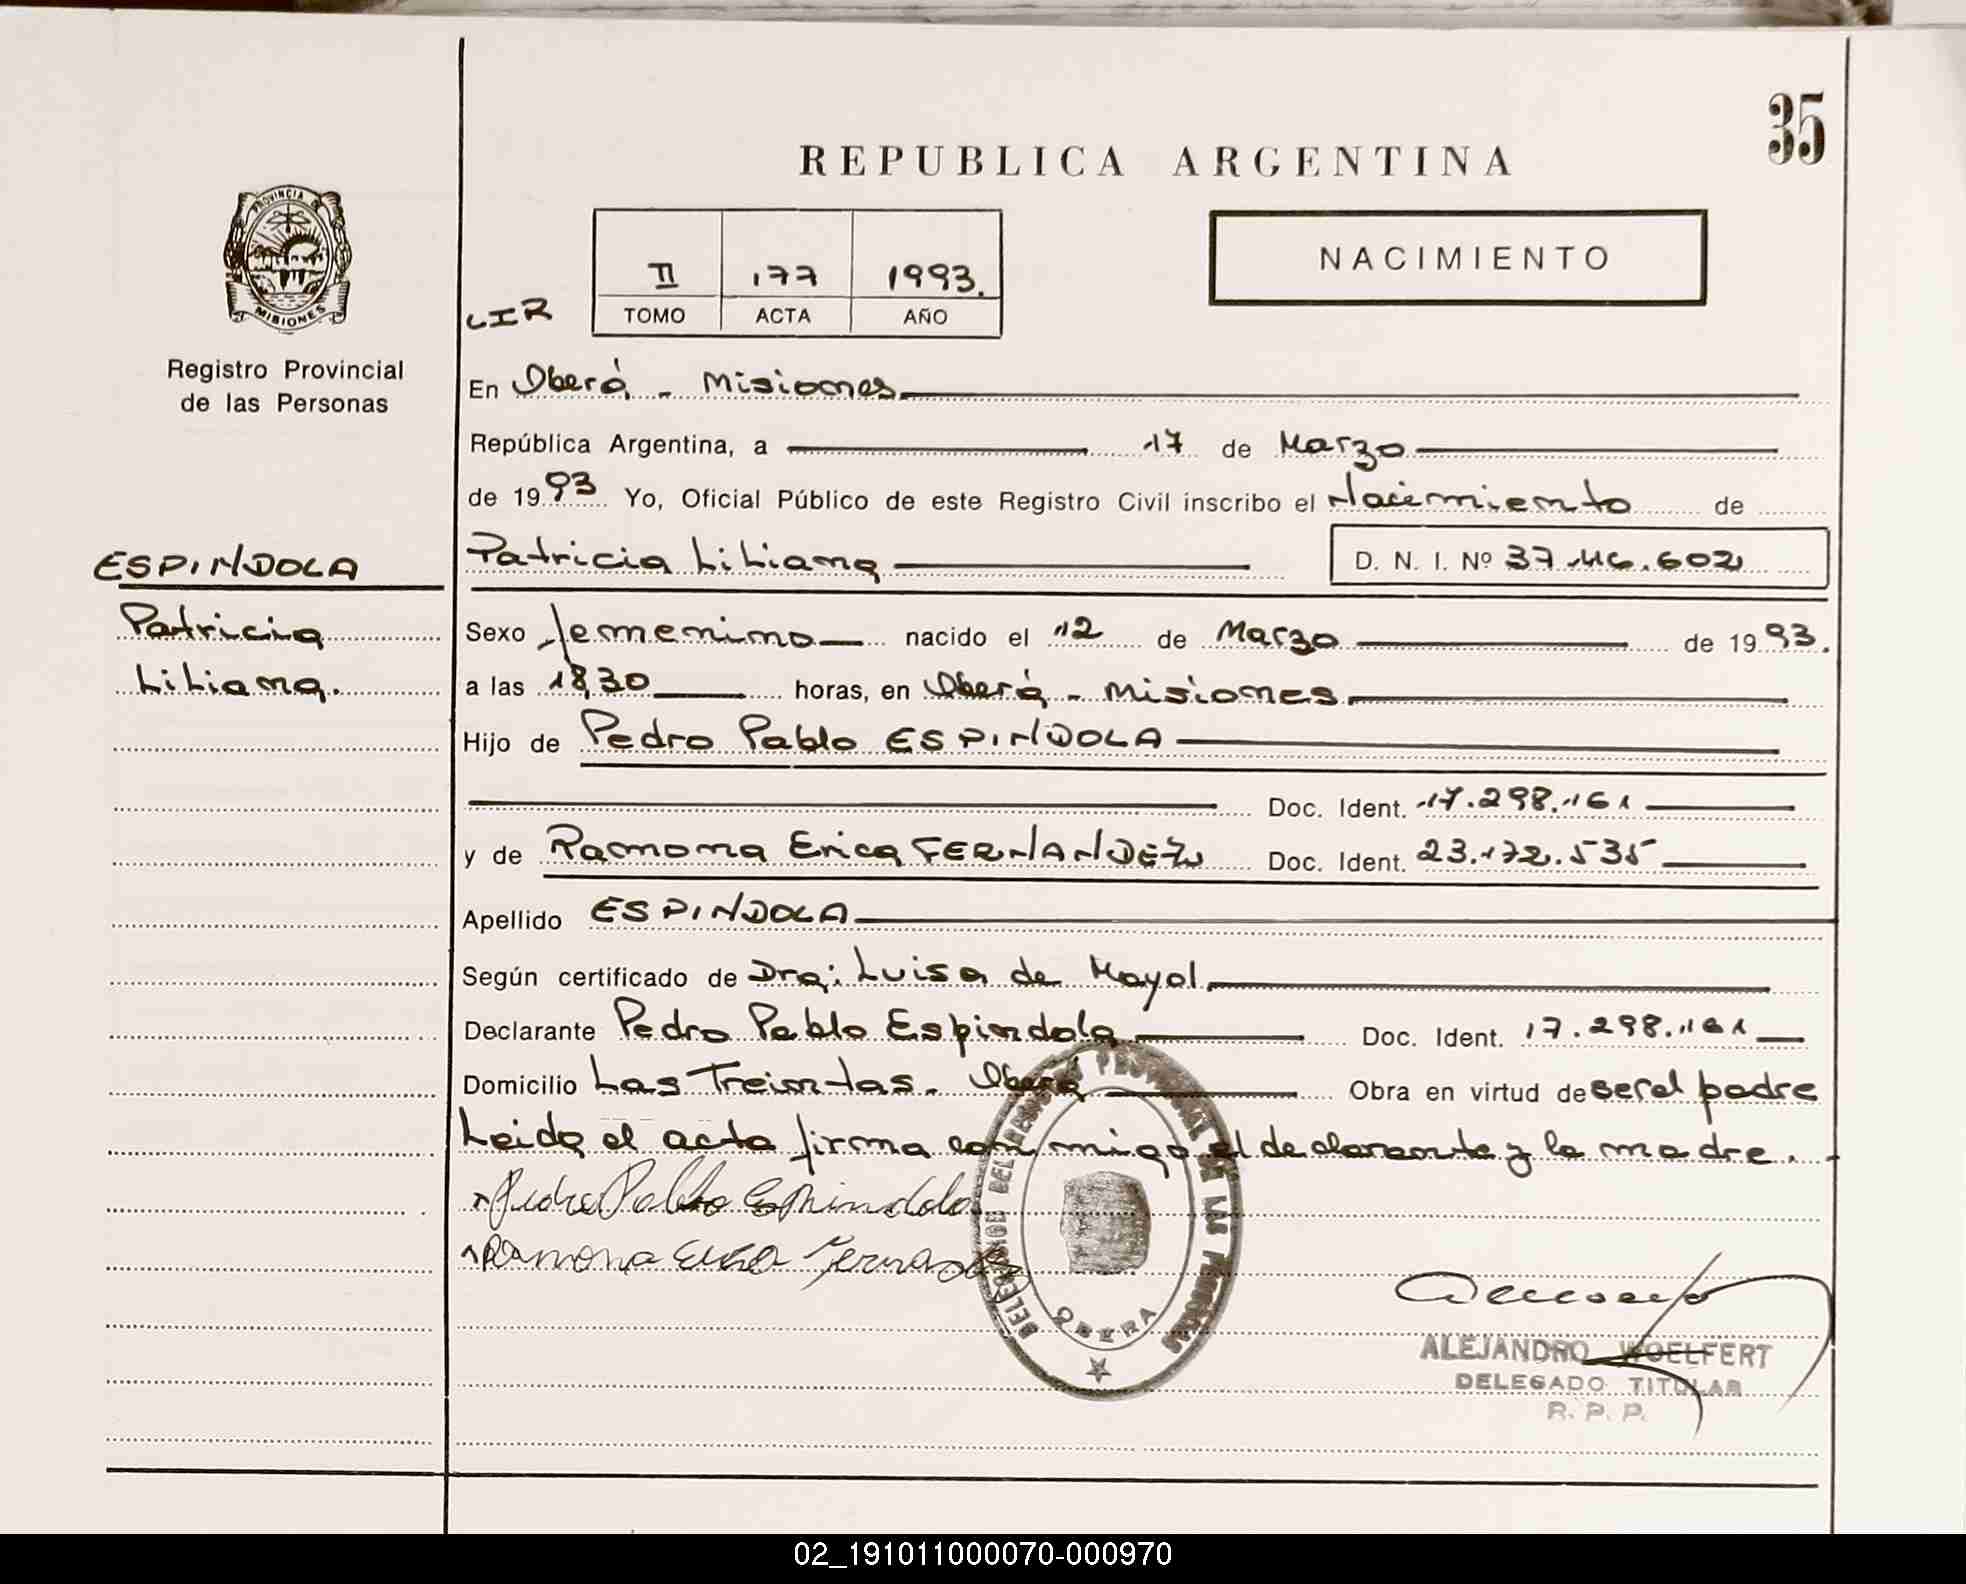 35
REPUBLICA ARGENTINA
PROVINCIA DE
MISIONES
II 177 1993.
TOMO ACTA AÑO
NACIMIENTO
LIR
Registro Provincial
de las Personas
En Oberá - Misiones
República Argentina, a 17 de Marzo
de 1993 Yo, Oficial Público de este Registro Civil inscribo el Nacimiento de
ESPINDOLA
Patricia Liliana D. N. I. Nº 37.116.602
Patricia
Sexo femenino nacido el 12 de Marzo de 1993.
Liliana.
a las 18,30 horas, en Oberá - Misiones
Hijo de Pedro Pablo ESPINDOLA
Doc. Ident. 17.298.161
y de Ramona Erica FERNANDEZ Doc. Ident. 23.172.535
Apellido ESPINDOLA
Según certificado de Dra: Luisa de Mayol
Declarante Pedro Pablo Espindola Doc. Ident. 17.298.161
Domicilio Las Treintas. Oberá Obra en virtud de ser el padre
Leida el acta firma con migo el declarante y la madre.
Pedro Pablo Espindola
Ramona Erica Fernandez
OBERA
ALEJANDRO WOELFERT
DELEGADO TITULAR
R. P. P.
02_191011000070-000970